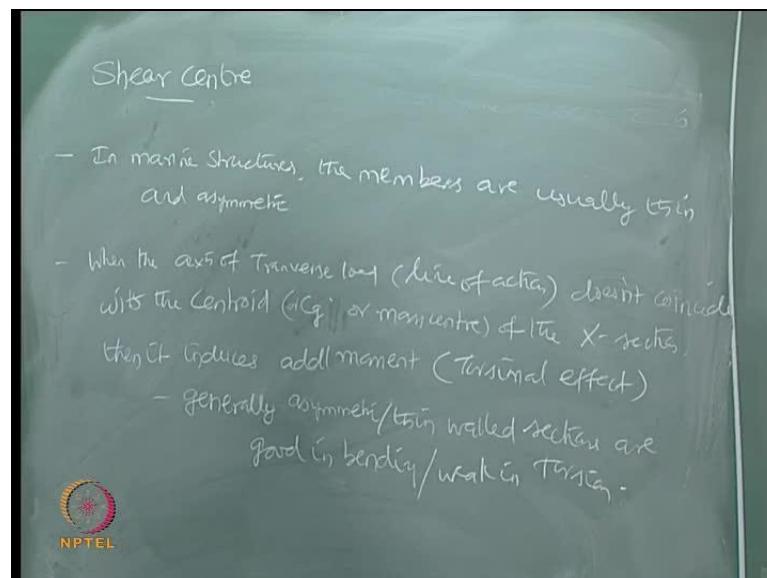 Shear Centre
- In marine structures, the members are usually thin
and asymmetric
- When the axis of Tranverse load (line of action) doesn't coincide
with the Centroid (Cg or mass centre) of the X-section,
then it induces addl moment (Torsional effect)
- generally asymmetric/thin walled sections are
good in bending/weak in Torsion.
NPTEL